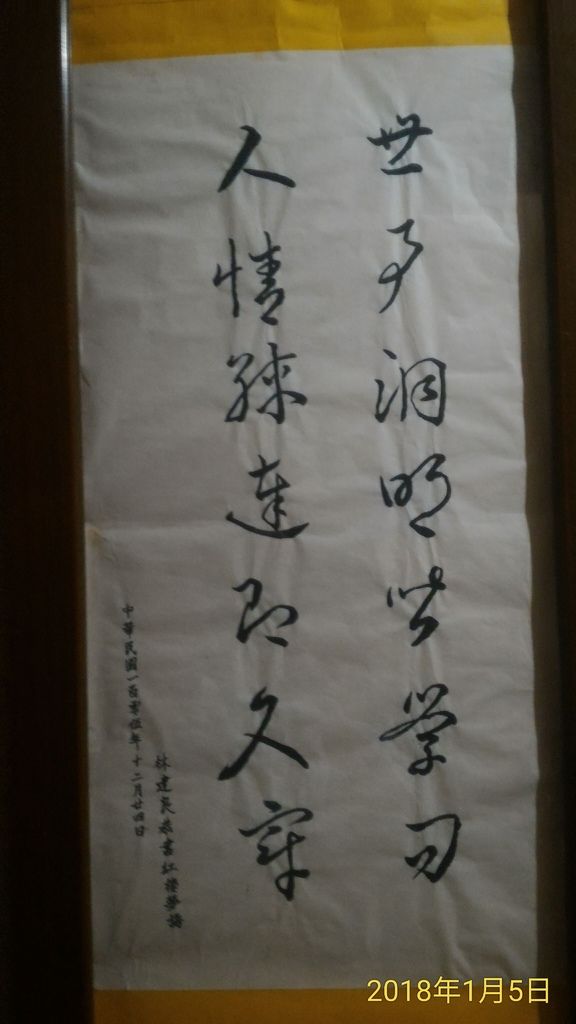 世事洞明皆學問
人情練達即文章
林建良恭書紅樓夢語
中華民國一百零伍年十二月廿四日
2018年1月5日